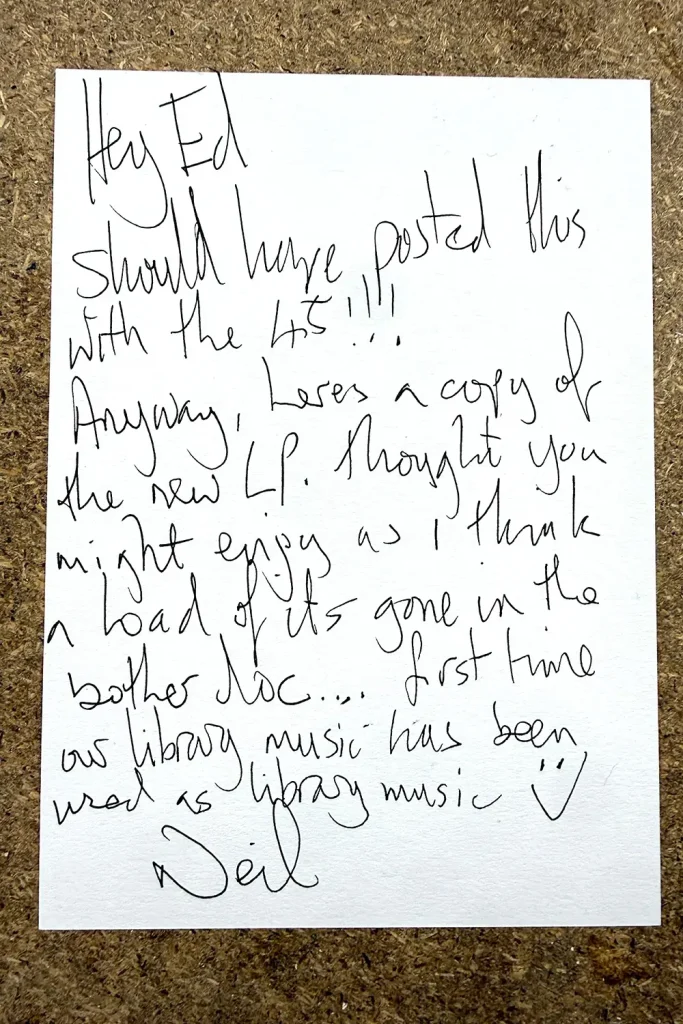 Hey Ed
should have posted this
with the 45!!!
Anyway, heres a copy of
the new LP. thought you
might enjoy as i think
a load of its gone in the
bother doc.... first time
our library music has been
used as library music :)
Neil